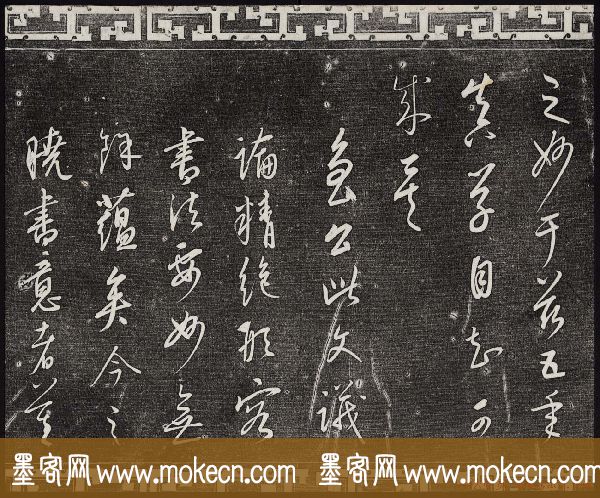 之妙于兹五年
真草自知可
成矣
魯公此文議
論精絕形容
書法要妙無
餘蘊矣今之
曉書意者莫
墨客网 www.mokecn.com 墨客网 www.mokecn.com